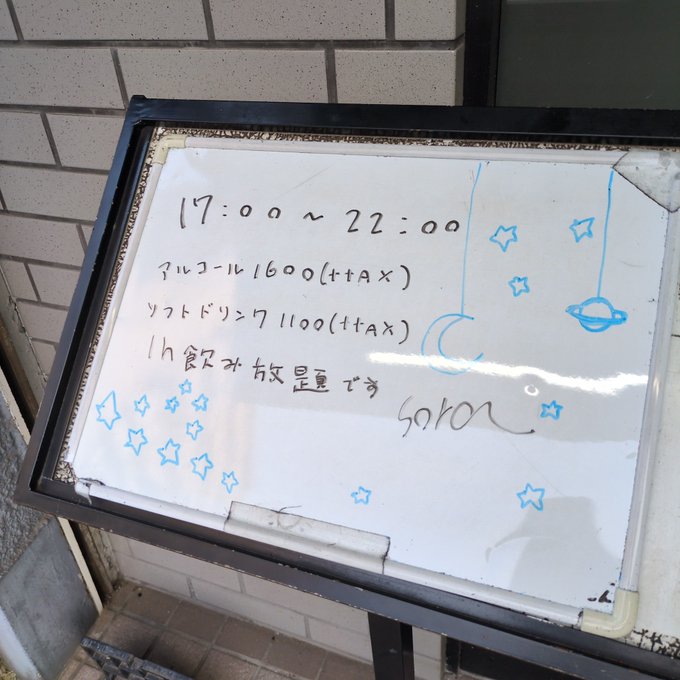 17:00～22:00
アルコール1600(+tAX)
ソフトドリンク1100(+tAX)
1h飲み放題です